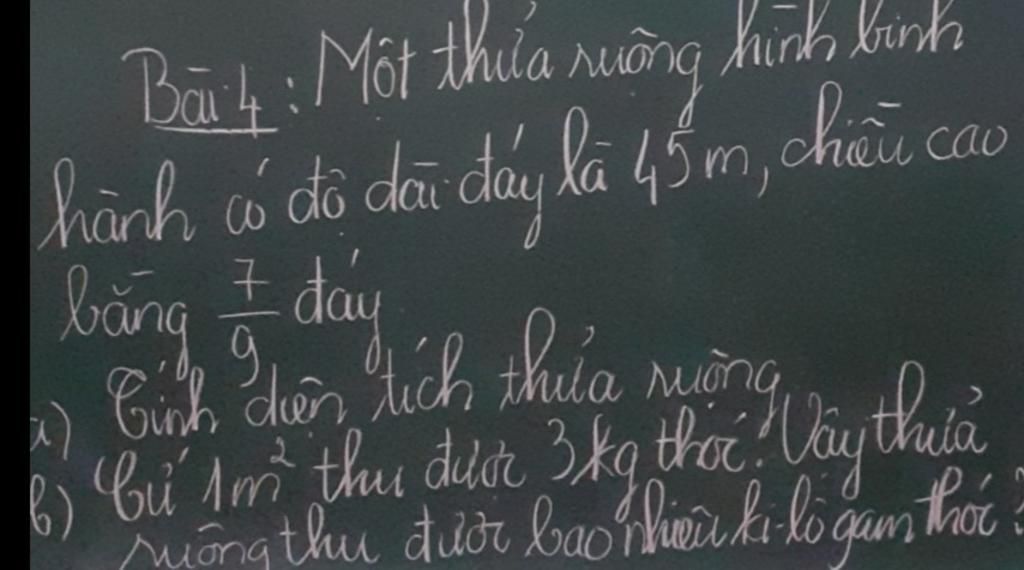 Bài 4: Một thửa ruộng hình bình
hành có độ dài đáy là 45 m, chiều cao
bằng 7/9 đáy
a) Tính diện tích thửa ruộng
b) Cứ 1m² thu được 3kg thóc. Vậy thửa
ruộng thu được bao nhiêu ki-lô gam thóc?